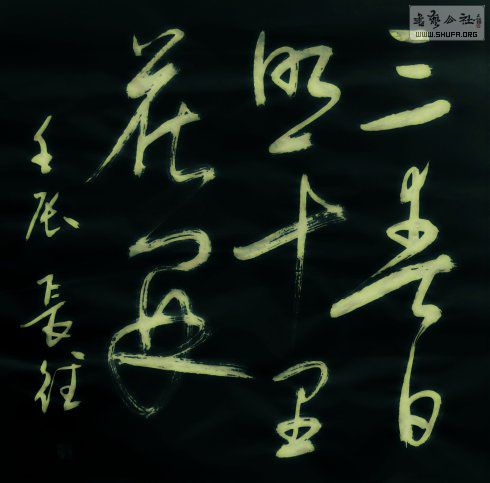 三春日
十里
花
壬辰 長
書藝公社
WWW.SHUFA.ORG